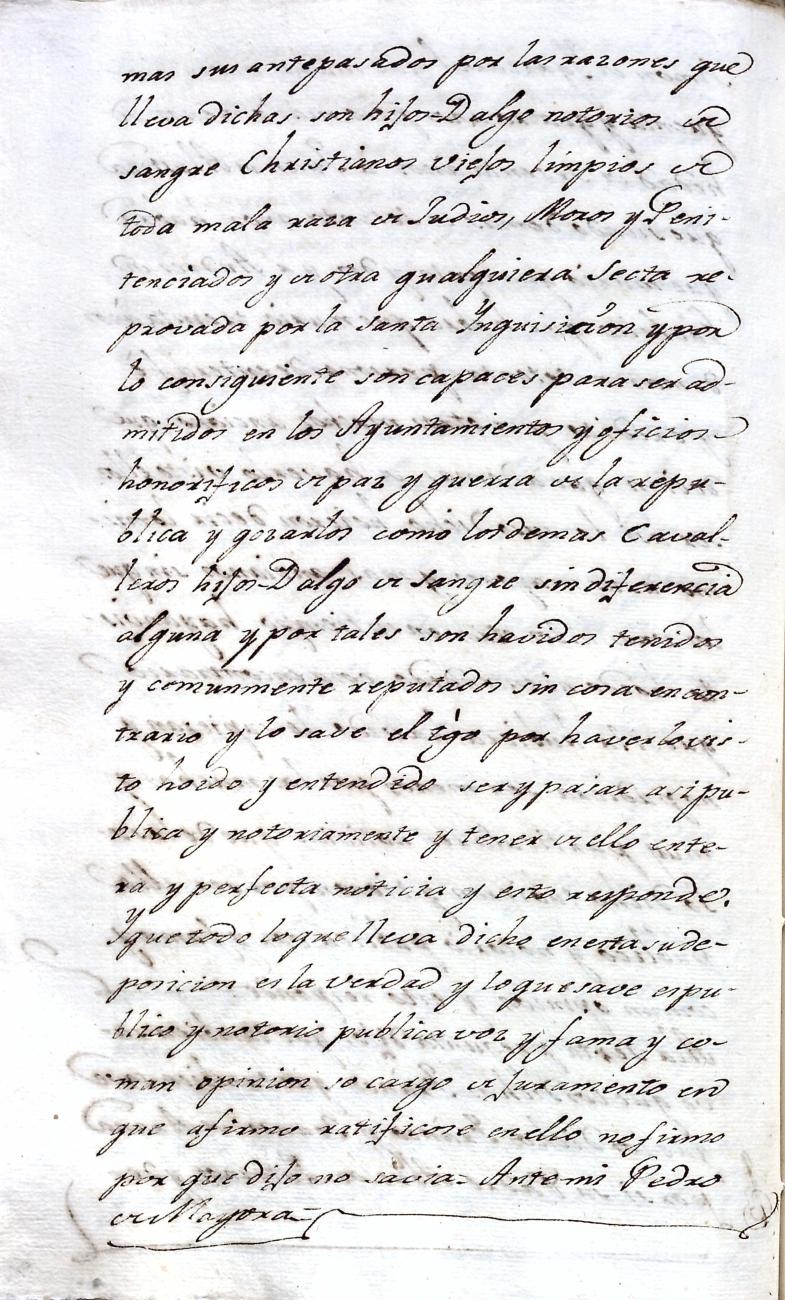 mas sus antepasados por las razones que
lleva dichas son hijos-Dalgo notorios de
sangre Christianos viejos limpios de
toda mala raza de Judios, Moros y Peni-
tenciados y de otra qualquiera Secta re-
provada por la Santa Ynquisicion y por
lo consiguiente son capaces para ser ad-
mitidos en los Ayuntamientos y oficios
honorificos de paz y guerra de la repu-
blica y gozarlos como los demas Caval-
leros hijos-Dalgo de Sangre sin diferencia
alguna y por tales son havidos tenidos
y comunmente reputados sin cosa en con-
trario y lo save el tgo por haverlo vis-
to hoido y entendido ser y pasar asi pu-
blica y notoriamente y tener de ello ente-
ra y perfecta noticia y esto responde.
Y que todo lo que lleva dicho en esta su de-
posicion es la verdad y lo que save es pu-
blico y notorio publica voz y fama y co-
mun opinion so cargo de Juramento en
que afirmo ratificose en ello no firmo
por que dijo no savia= Ante mi Pedro
de Mayora-